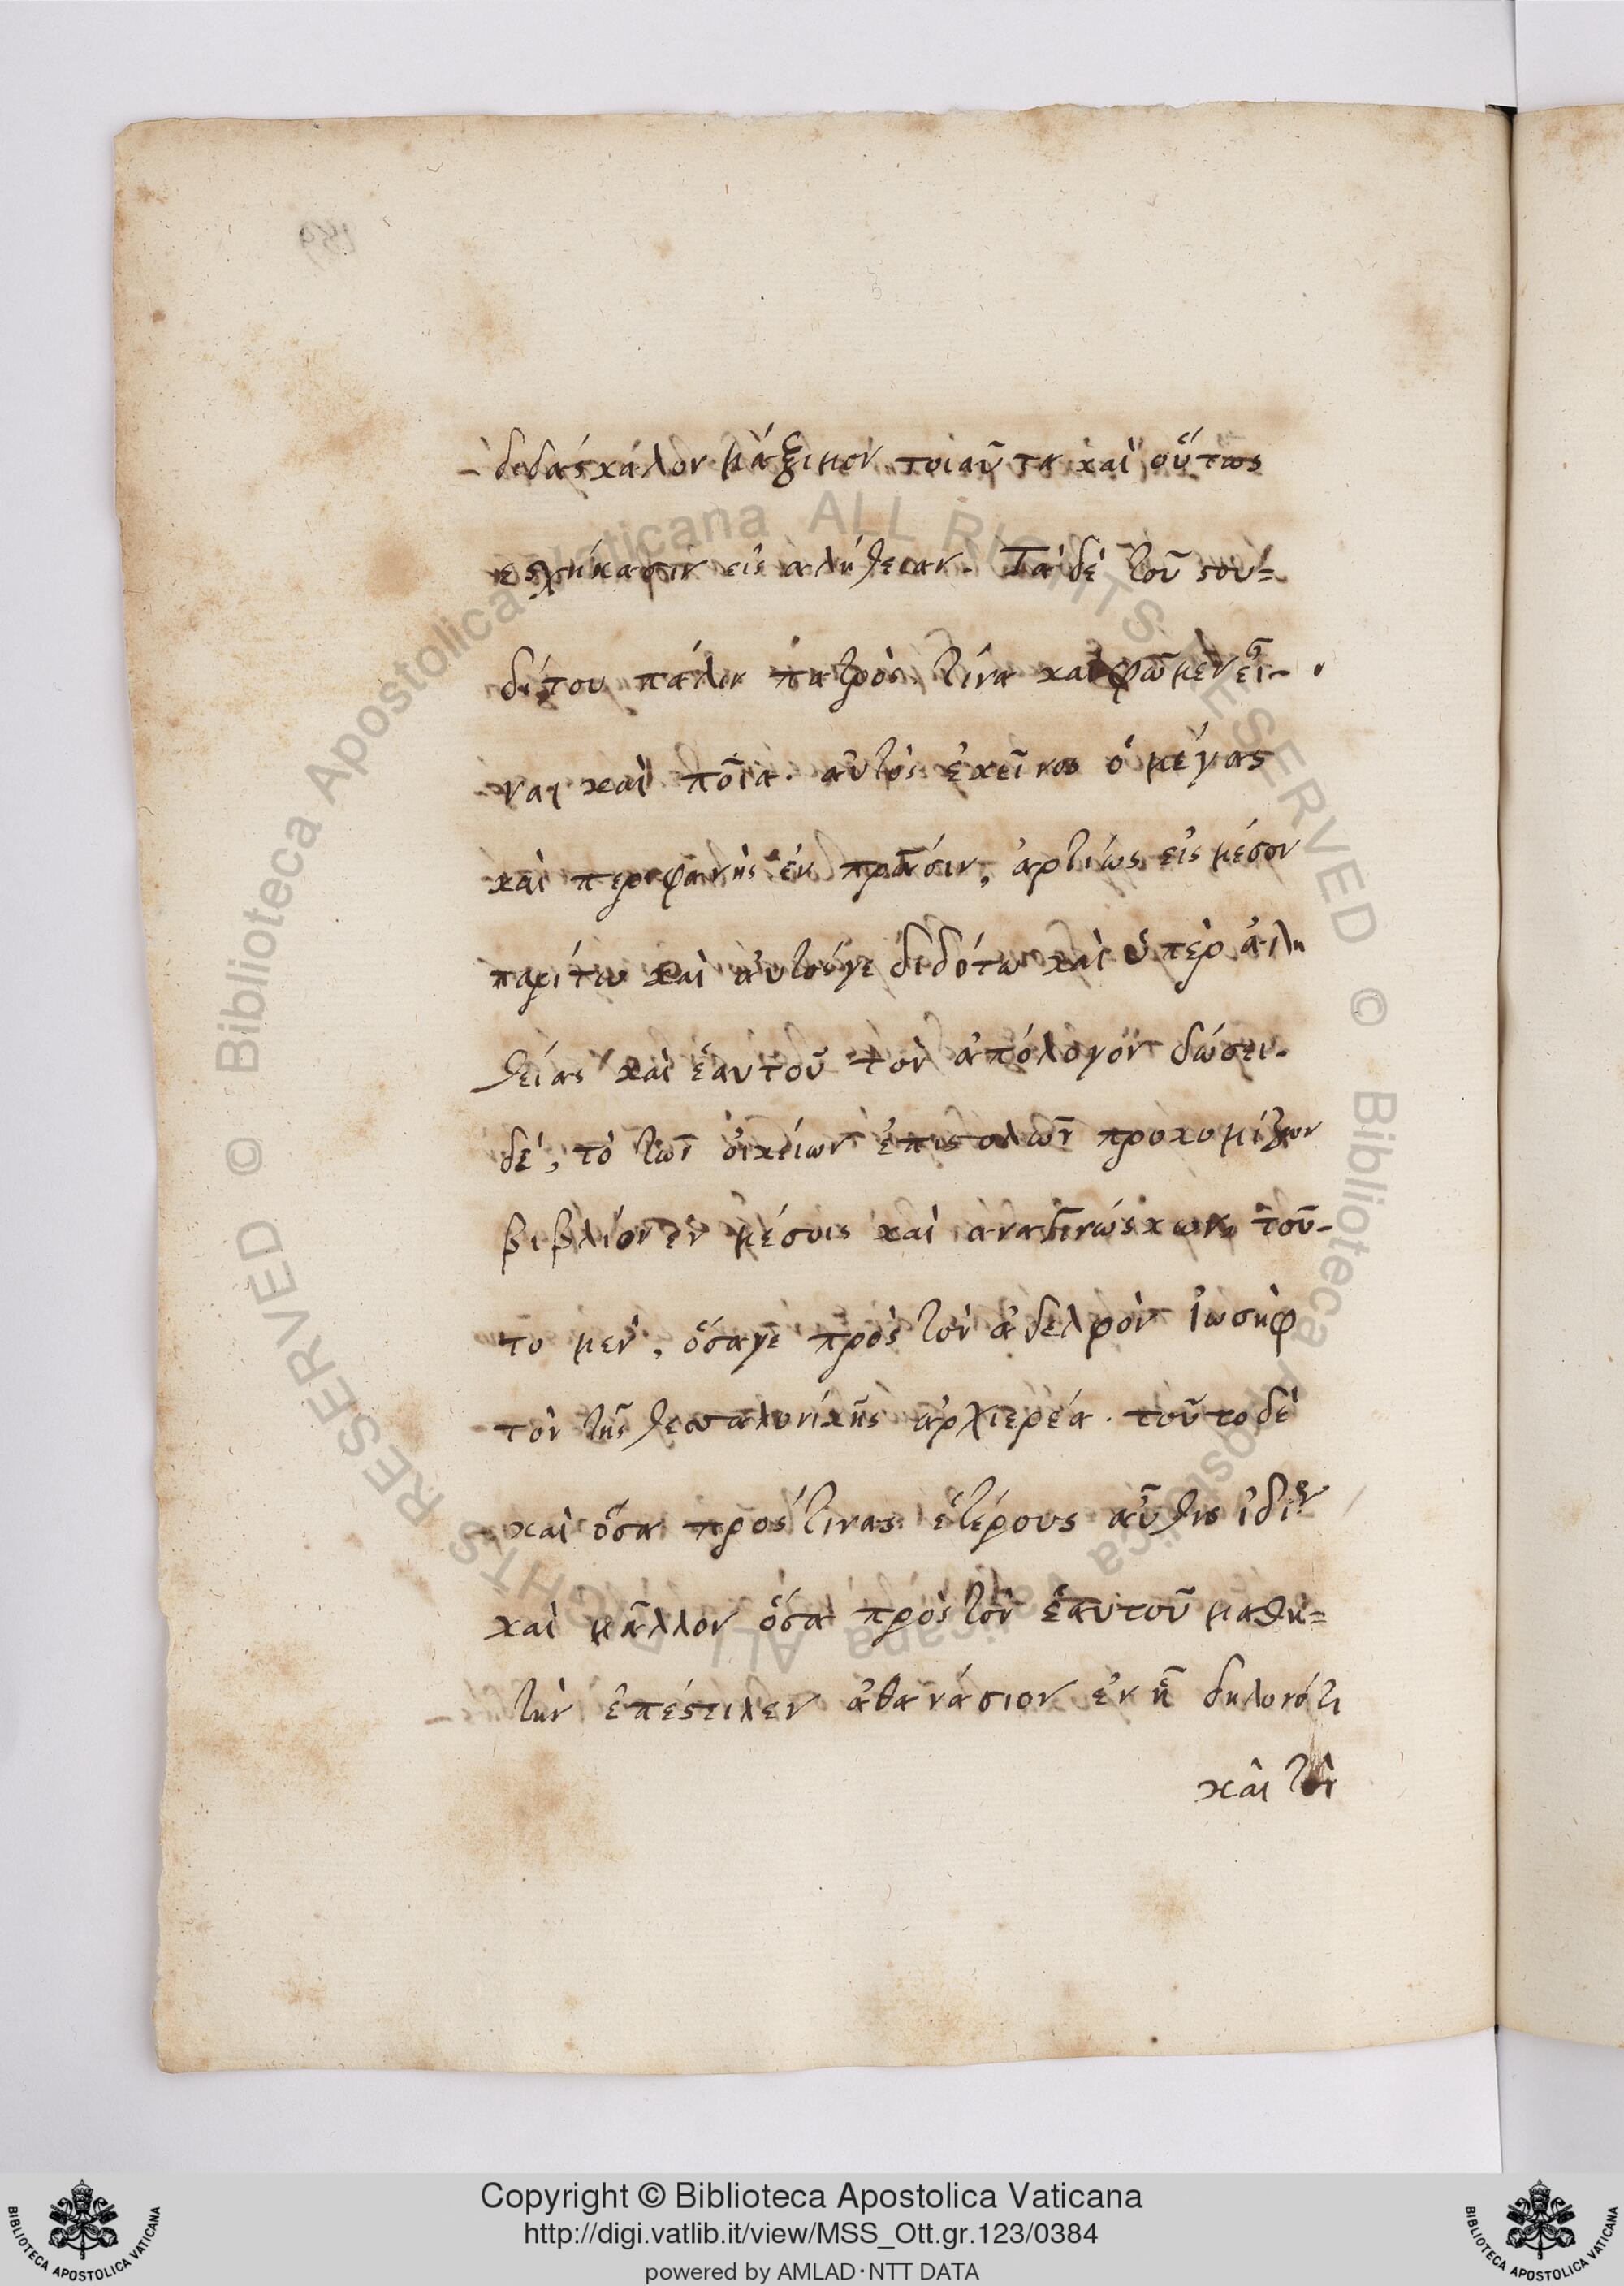 διδάσκαλον μάξιμον τοιαῦτα καὶ οὕτως
εἰς ἀλήθειαν. Τὰ δὲ τοῦ στου=
δίτου πάλιν πατρὸς τίνα καὶ φῶμεν εἶ-
ναι καὶ ποῖα. αὐτὸς ἐκεῖνος ὁ μέγας
καὶ περιφανὴς ἐν πράσιν, ἀρτίως εἰς μέσον
παρίτω καὶ αὐτόγε διδότω καὶ ὑπὲρ ἀλη
θείας καὶ ἑαυτοῦ τὸν ἀπόλογον δώσει.
δέ, τὸ τῶν οἰκείων ἐπιστολῶν προκομίζων
βιβλίον ἐν μέσοις καὶ ἀναγινώσκων, τοῦ-
το μὲν, ὅσαγε πρὸς τὸν ἀδελφὸν ἰωσὴφ
τὸν τῆς θεσσαλονίκης ἀρχιερέα. τοῦτο δὲ
καὶ ὅσα πρός τινας ἑτέρους αὖθις
καὶ μᾶλλον ὅσα πρὸς τὸν ἑαυτοῦ μαθη=
τὴν ἐπέστιλεν ἀθανάσιον ἐν ᾗ δηλονότι
καὶ τὸν
Copyright © Biblioteca Apostolica Vaticana
http://digi.vatlib.it/view/MSS_Ott.gr.123/0384
powered by AMLAD·NTT DATA
BIBLIOTECA APOSTOLICA VATICANA
BIBLIOTECA APOSTOLICA VATICANA
© Biblioteca Apostolica Vaticana ALL RIGHTS RESERVED © Biblioteca Apostolica Vaticana ALL RIGHTS RESERVED